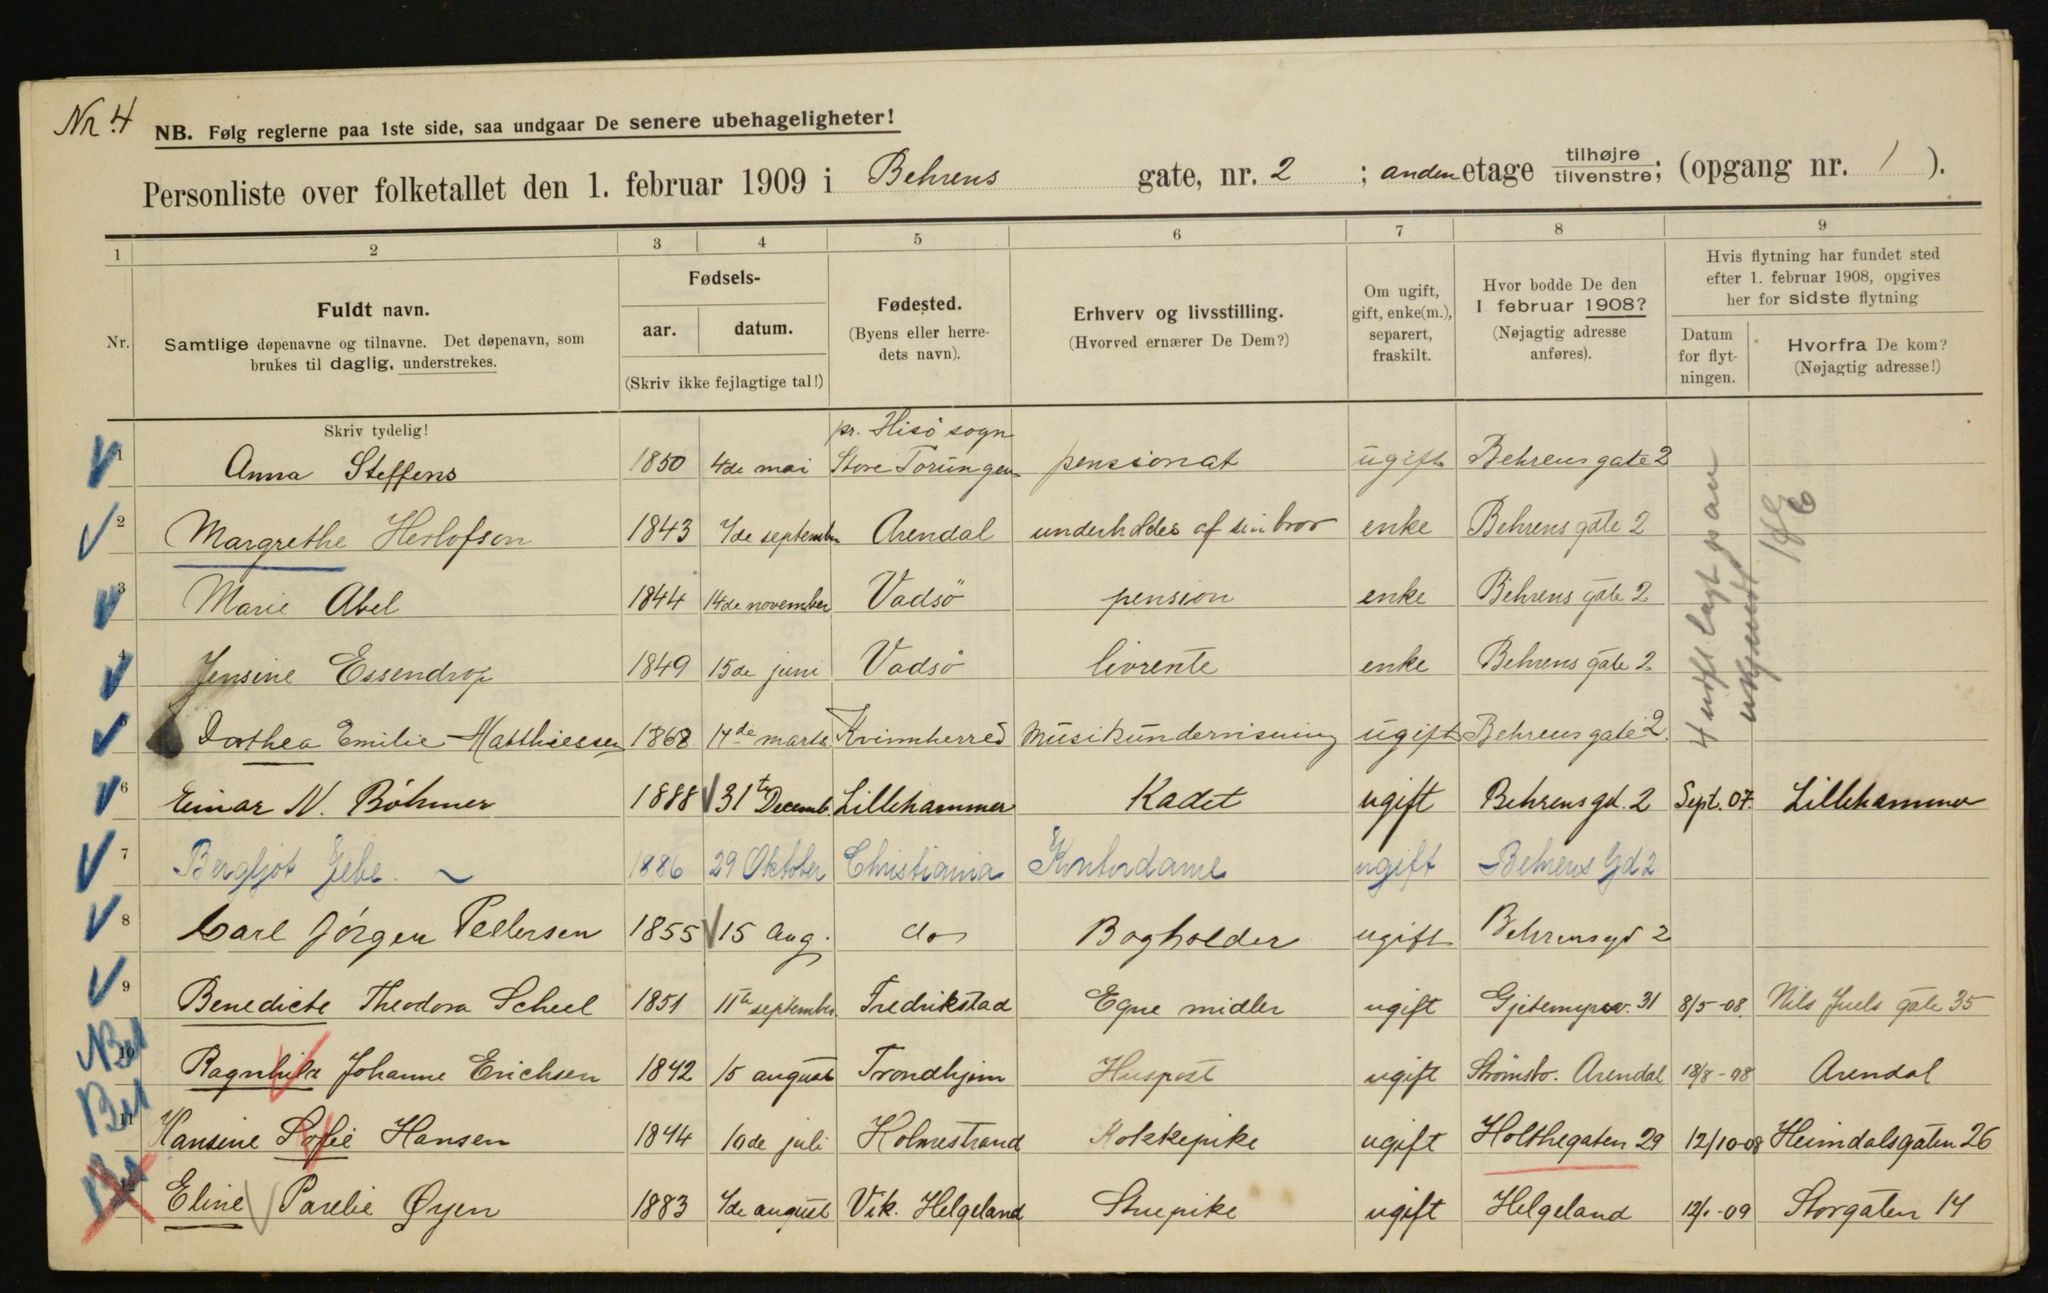 Nr. 4
NB. Følg reglerne paa 1ste side, saa undgaar De senere ubehageligheter!
Personliste over folketallet den 1. februar 1909 i Behrens gate, nr. 2 ; anden etage tilhøjre tilvenstre; (opgang nr. 1 ).
1 2 3 4 5 6 7 8 9
Nr.
Fuldt navn.
Samtlige døpenavne og tilnavne. Det døpenavn, som
brukes til daglig, understrekes.
Fødsels-
aar. datum.
(Skriv ikke fejlagtige tal!)
Fødested.
(Byens eller herre-
dets navn).
Erhverv og livsstilling.
(Hvorved ernærer De Dem?)
Om ugift,
gift, enke(m.),
separert,
fraskilt.
Hvor bodde De den
1 februar 1908?
(Nøjagtig adresse
anføres).
Hvis flytning har fundet sted
efter 1. februar 1908, opgives
her for sidste flytning
Datum
for flyt-
ningen.
Hvorfra De kom?
(Nøjagtig adresse!)
Skriv tydelig!
pr. Hisö sogn
1 Anna Steffens 1850 4de mai Store Torungen pensionat ugift Behrensgate 2
2 Margrethe Herlofson 1843 7de september Arendal underholdes af sin bror enke Behrens gate 2
3 Marie Abel 1844 14de november Vadsö pension enke Behrens gate 2
4 Jensine Essendrop 1849 15de juni Vadsö livrente enke Behrens gate 2
5 Dorthea Emilie Matthiessen 1868 14de marts Kvinnherred Musikundervisning ugift Behrensgate 2.
6 Einar N. Böhmer 1888 31te Decemb. Lillehammer Kadet ugift Behrensgd. 2 Sept. 07. Lillehammer
7 Bergljot Jebe 1886 29 Oktober Christiania Kontordame ugift Behrens Gd 2
8 Carl Jörgen Pettersen 1855 15 Aug. do Bogholder ugift Behrensgd 2
9 Benedicte Theodora Scheel 1851 11te september Fredrikstad Egne midler ugift Gjetemyrsv. 31 8/5-08. Nils Juels gate 35
10 Ragnhild Johanne Erichsen 1842 15 august Trondhjem Huspost ugift Strömsbo. Arendal 18/8-08 Arendal
11 Hansine Sofie Hansen 1844 10de juli Holmestrand Kokkepike ugift Holthegaten 29 12/10-08 Heimdalsgaten 26
12 Eline Parelie Øyen 1883 7de august Vik. Helgeland Stuepike ugift Helgeland 12/1-09 Storgaten 14